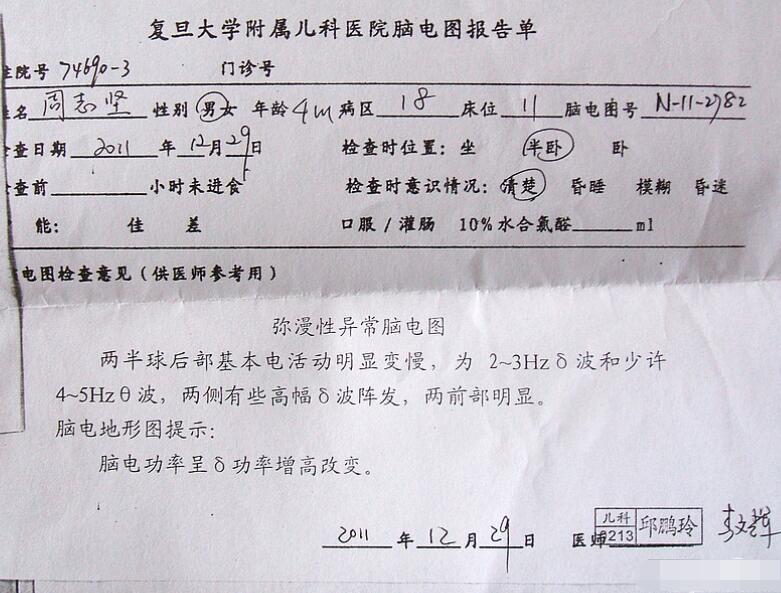 复旦大学附属儿科医院脑电图报告单
住院号 74690-3 门诊号
姓名 周志坚 性别 男 女 年龄 4m 病区 18 床位 11 脑电图号 N-11-2782
检查日期 2011 年 12 月 29 日 检查时位置: 坐 半卧 卧
检查前 小时未进食 检查时意识情况: 清楚 昏睡 模糊 昏迷
能: 佳 差 口服 / 灌肠 10% 水合氯醛 ml
电图检查意见 (供医师参考用)
弥漫性异常脑电图
两半球后部基本电活动明显变慢, 为 2~3Hz δ 波和少许
4~5Hz θ 波, 两侧有些高幅 δ 波阵发, 两前部明显。
脑电地形图提示:
脑电功率呈 δ 功率增高改变。
2011 年 12 月 29 日 医师 儿科 0213 邱鹏玲